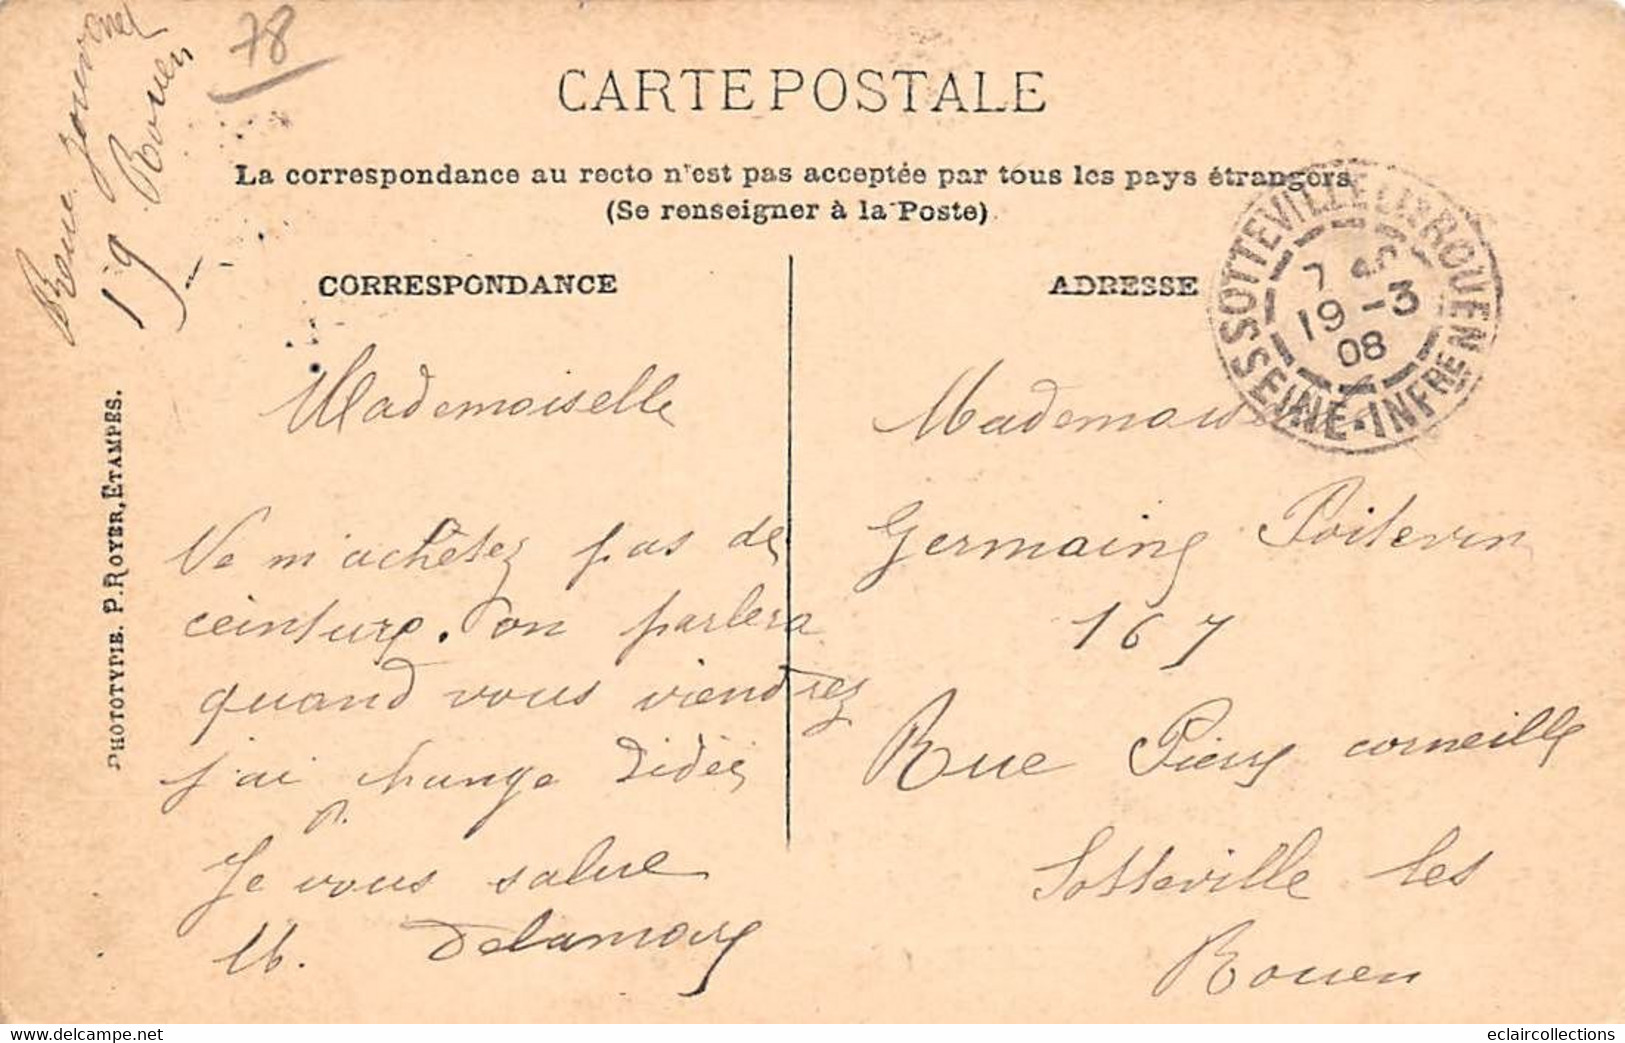 78
Rouen
19
CARTE POSTALE
La correspondance au recto n'est pas acceptée par tous les pays étrangers
(Se renseigner à la Poste)
CORRESPONDANCE
ADRESSE
SOTTEVILLE LES ROUEN
7
19 - 3
08
SEINE-INFRE
PHOTOTYPIE. P. ROYER, ETAMPES.
Mademoiselle
Ne m'achêtez pas de
ceinture. on parlera
quand vous viendrez
j'ai change didée
Je vous salue
M. Delamare
Mademoiselle
Germaine Poitevin
167
Rue Pierre corneille
Sotteville les
Rouen
www.delcampe.net
eclaircollections